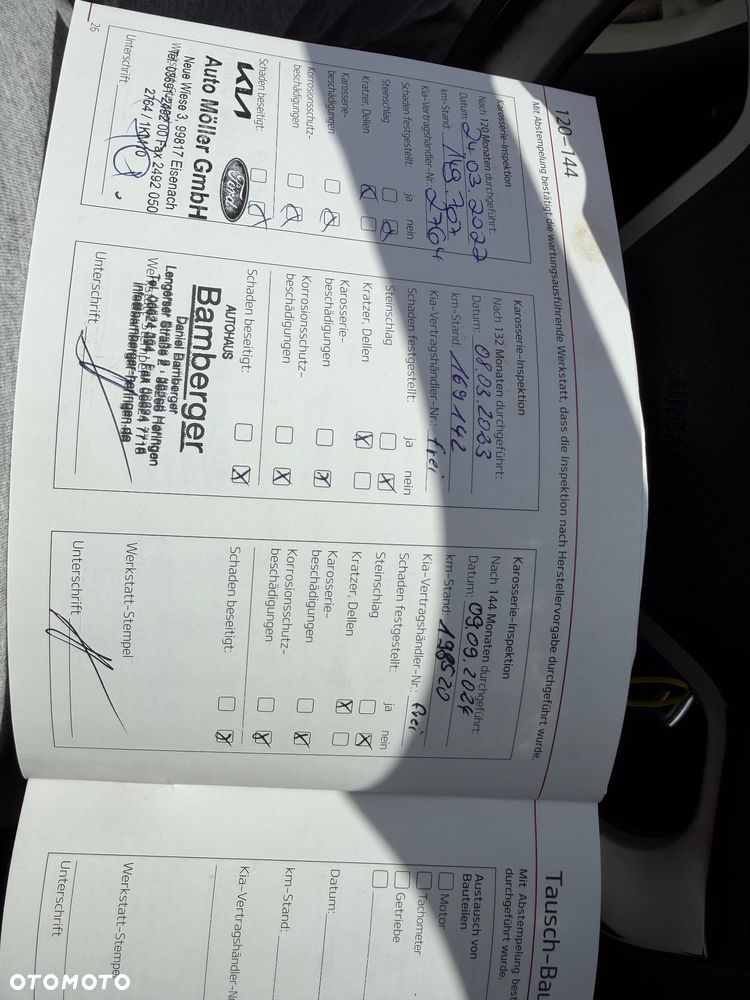 120–144
Mit Abstempelung bestätigt die wartungsausführende Werkstatt, dass die Inspektion nach Herstellervorgabe durchgeführt wurde.
Karosserie-Inspektion
Nach 120 Monaten durchgeführt:
Datum: 24.03.2022
km-Stand: 149.307
Kia-Vertragshändler-Nr.: 2764
Schaden festgestellt: ja nein
Steinschlag
Kratzer, Dellen
Karosserie-
beschädigungen
Korrosionsschutz-
beschädigungen
Schaden beseitigt:
KIA
Ford
Auto Möller GmbH
Neue Wiese 3, 99817 Eisenach
Unterschrift
26
Karosserie-Inspektion
Nach 132 Monaten durchgeführt:
Datum: 08.03.2023
km-Stand: 169142
Kia-Vertragshändler-Nr.: frei
Schaden festgestellt: ja nein
Steinschlag
Kratzer, Dellen
Karosserie-
beschädigungen
Korrosionsschutz-
beschädigungen
Schaden beseitigt:
AUTOHAUS
Bamberger
Daniel Bamberger
Unterschrift
Karosserie-Inspektion
Nach 144 Monaten durchgeführt:
Datum: 09.09.2024
km-Stand: 198520
Kia-Vertragshändler-Nr.: frei
Schaden festgestellt: ja nein
Steinschlag
Kratzer, Dellen
Karosserie-
beschädigungen
Korrosionsschutz-
beschädigungen
Schaden beseitigt:
Werkstatt-Stempel
Unterschrift
Tausch-Bau
Mit Abstempelung best
durchgeführt wurde.
Austausch von
Bauteilen
Motor
Tachometer
Getriebe
Datum:
km-Stand:
Kia-Vertragshändler-N
Werkstatt-Stempel
Unterschrift
OTOMOTO